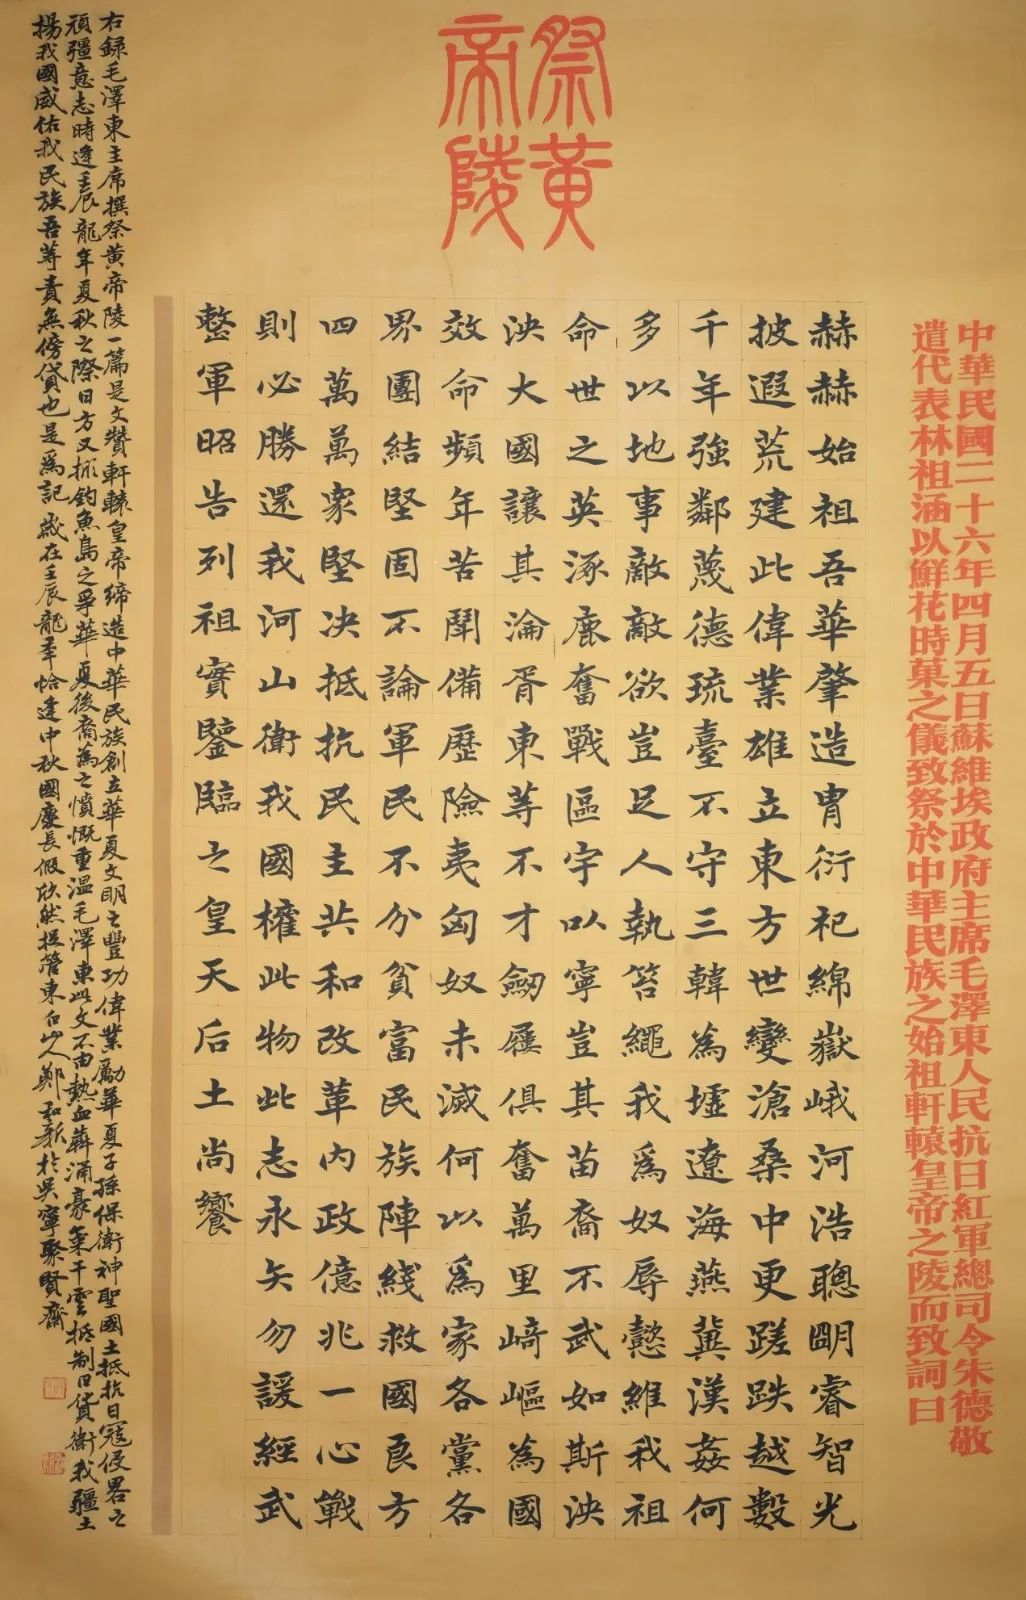 祭黃
帝陵
中華民國二十六年四月五日蘇維埃政府主席毛澤東人民抗日紅軍總司令朱德敬
遣代表林祖涵以鮮花時菓之儀致祭於中華民族之始祖軒轅皇帝之陵而致詞曰
赫赫始祖吾華肇造冑衍祀綿嶽峨河浩聰明睿智光
披遐荒建此偉業雄立東方世變滄桑中更蹉跌越數
千年強鄰蔑德琉臺不守三韓為墟遼海燕冀漢姦何
多以地事敵敵欲豈足人執笞繩我為奴辱懿維我祖
命世之英涿鹿奮戰區宇以寧豈其苗裔不武如斯泱
泱大國讓其淪胥東等不才劒屨俱奮萬里崎嶇為國
效命頻年苦鬥備歷險夷匈奴未滅何以為家各黨各
界團結堅固不論軍民不分貧富民族陣綫救國良方
四萬萬眾堅決抵抗民主共和改革內政億兆一心戰
則必勝還我河山衛我國權此物此志永矢勿諼經武
整軍昭告列祖實鑒臨之皇天后土尚饗
右録毛澤東主席撰祭黄帝陵一篇是文贊軒轅皇帝締造中華民族創立華夏文明之豐功偉業勵華夏子孫保衛神聖國土抵抗日寇侵畧之
頑彊意志時逢壬辰龍年夏秋之際日方又挑釣魚島之爭華夏後裔為之憤慨重溫毛澤東此文不由熱血犇涌豪氣干雲抵制日貨衛我疆土
揚我國威佑我民族吾等責無傍貸也是爲記歲在壬辰龍年恰逢中秋國慶長假欣然捉管東白山人鄭和新於吳寧聚賢齋